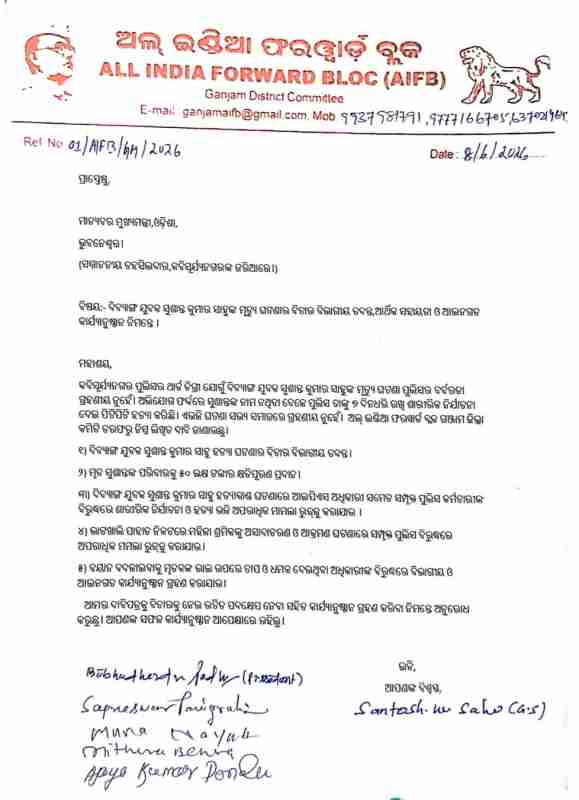 ଅଲ୍ ଇଣ୍ଡିଆ ଫରୱାର୍ଡ଼ ବ୍ଲକ
ALL INDIA FORWARD BLOC (AIFB)
Ganjam District Committee
E-mail ganjamaifb@gmail.com. Mob 9937981791, 9777166705,
Ref No 01/AIFB/GM/2026
Date : 8/6/2026
ପ୍ରାପ୍ତେଷୁ,
ମାନ୍ୟବର ମୁଖ୍ୟମନ୍ତ୍ରୀ,ଓଡ଼ିଶା,
ଭୁବନେଶ୍ୱର।
(ସମ୍ମାନନୀୟ ତହସିଲଦାର,କବିସୂର୍ଯ୍ୟନଗରଙ୍କ ଜରିଆରେ।)
ବିଷୟ:- ଦିବ୍ୟାଙ୍ଗ ଯୁବକ ସୁଶାନ୍ତ କୁମାର ସାହୁଙ୍କ ମୃତ୍ୟୁ ଘଟଣାର ବିଚାର ବିଭାଗୀୟ ତଦନ୍ତ,ଆର୍ଥିକ ସହାୟତା ଓ ଆଇନଗତ
କାର୍ଯ୍ୟାନୁଷ୍ଠାନ ନିମନ୍ତେ ।
ମହାଶୟ,
କବିସୂର୍ଯ୍ୟନଗର ପୁଲିସର ଥାର୍ଡ ଡିଗ୍ରୀ ଯୋଗୁଁ ଦିବ୍ୟାଙ୍ଗ ଯୁବକ ସୁଶାନ୍ତ କୁମାର ସାହୁଙ୍କ ମୃତ୍ୟୁ ଘଟଣା ପୁଲିସର ବର୍ବରତା
ଗ୍ରହଣୀୟ ନୁହେଁ। ଅଭିଯୋଗ ଫର୍ଦ୍ଦରେ ସୁଶାନ୍ତଙ୍କ ନାମ ନଥିବା ବେଳେ ପୁଲିସ ତାଙ୍କୁ ୭ ଦିନଧରି ରଖି ଶାରୀରିକ ନିର୍ଯାତନା
ଦେଇ ପିଟିପିଟି ହତ୍ୟା କରିଛି। ଏଭଳି ଘଟଣା ସଭ୍ୟ ସମାଜରେ ଗ୍ରହଣୀୟ ନୁହେଁ। ଅଲ୍ ଇଣ୍ଡିଆ ଫରୱାର୍ଡ ବ୍ଲକ ଗଞ୍ଜାମ ଜିଲ୍ଲା
କମିଟି ତରଫରୁ ନିମ୍ନ ଲିଖିତ ଦାବି ଜଣାଉଛୁ।
୧) ଦିବ୍ୟାଙ୍ଗ ଯୁବକ ସୁଶାନ୍ତ କୁମାର ସାହୁ ହତ୍ୟା ଘଟଣାର ବିଚାର ବିଭାଗୀୟ ତଦନ୍ତ।
୨) ମୃତ ସୁଶାନ୍ତଙ୍କ ପରିବାରକୁ ୫୦ ଲକ୍ଷ ଟଙ୍କାର କ୍ଷତିପୂରଣ ପ୍ରଦାନ।
୩) ଦିବ୍ୟାଙ୍ଗ ଯୁବକ ସୁଶାନ୍ତ କୁମାର ସାହୁ ହତ୍ୟାକାଣ୍ଡ ଘଟଣାରେ ଆଇପିଏସ ଅଧିକାରୀ ସମେତ ସମ୍ପୃକ୍ତ ପୁଲିସ କର୍ମଚାରୀଙ୍କ
ବିରୁଦ୍ଧରେ ଶାରୀରିକ ନିର୍ଯାତନା ଓ ହତ୍ୟା ଭଳି ଅପରାଧିକ ମାମଲା ରୁଜୁ କରାଯାଉ ।
୪) ଭାଟଖାଲି ପାହାଡ ନିକଟରେ ମହିଳା ଶ୍ରମିକଙ୍କୁ ଅସଦାଚରଣ ଓ ଆକ୍ରମଣ ଘଟଣାରେ ସମ୍ପୃକ୍ତ ପୁଲିସ ବିରୁଦ୍ଧରେ
ଅପରାଧିକ ମମଲା ରୁଜୁ କରାଯାଉ।
୫) ବୟାନ ବଦଳାଇବାକୁ ମୃତକଙ୍କ ଭାଇ ଉପରେ ଚାପ ଓ ଧମକ ଦେଉଥିବା ଅଧିକାରୀଙ୍କ ବିରୁଦ୍ଧରେ ବିଭାଗୀୟ ଓ
ଆଇନଗତ କାର୍ଯ୍ୟାନୁଷ୍ଠାନ ଗ୍ରହଣ କରାଯାଉ।
ଆମର ଦାବିପତ୍ରକୁ ବିଚାରକୁ ନେଇ ଉଚିତ ପଦକ୍ଷେପ ନେବା ସହିତ କାର୍ଯ୍ୟାନୁଷ୍ଠାନ ଗ୍ରହଣ କରିବା ନିମନ୍ତେ ଅନୁରୋଧ
କରୁଛୁ। ଆପଣଙ୍କ ସଫଳ କାର୍ଯ୍ୟାନୁଷ୍ଠାନ ଅପେକ୍ଷାରେ ରହିଲୁ।
ଇତି,
ଆପଣଙ୍କ ବିଶ୍ୱସ୍ତ,
(President)
Santosh Ku Sahu (G.S)
Sapneswar Panigrahi
Muna Nayak
Mithuna Behera
Ajaya Kumar